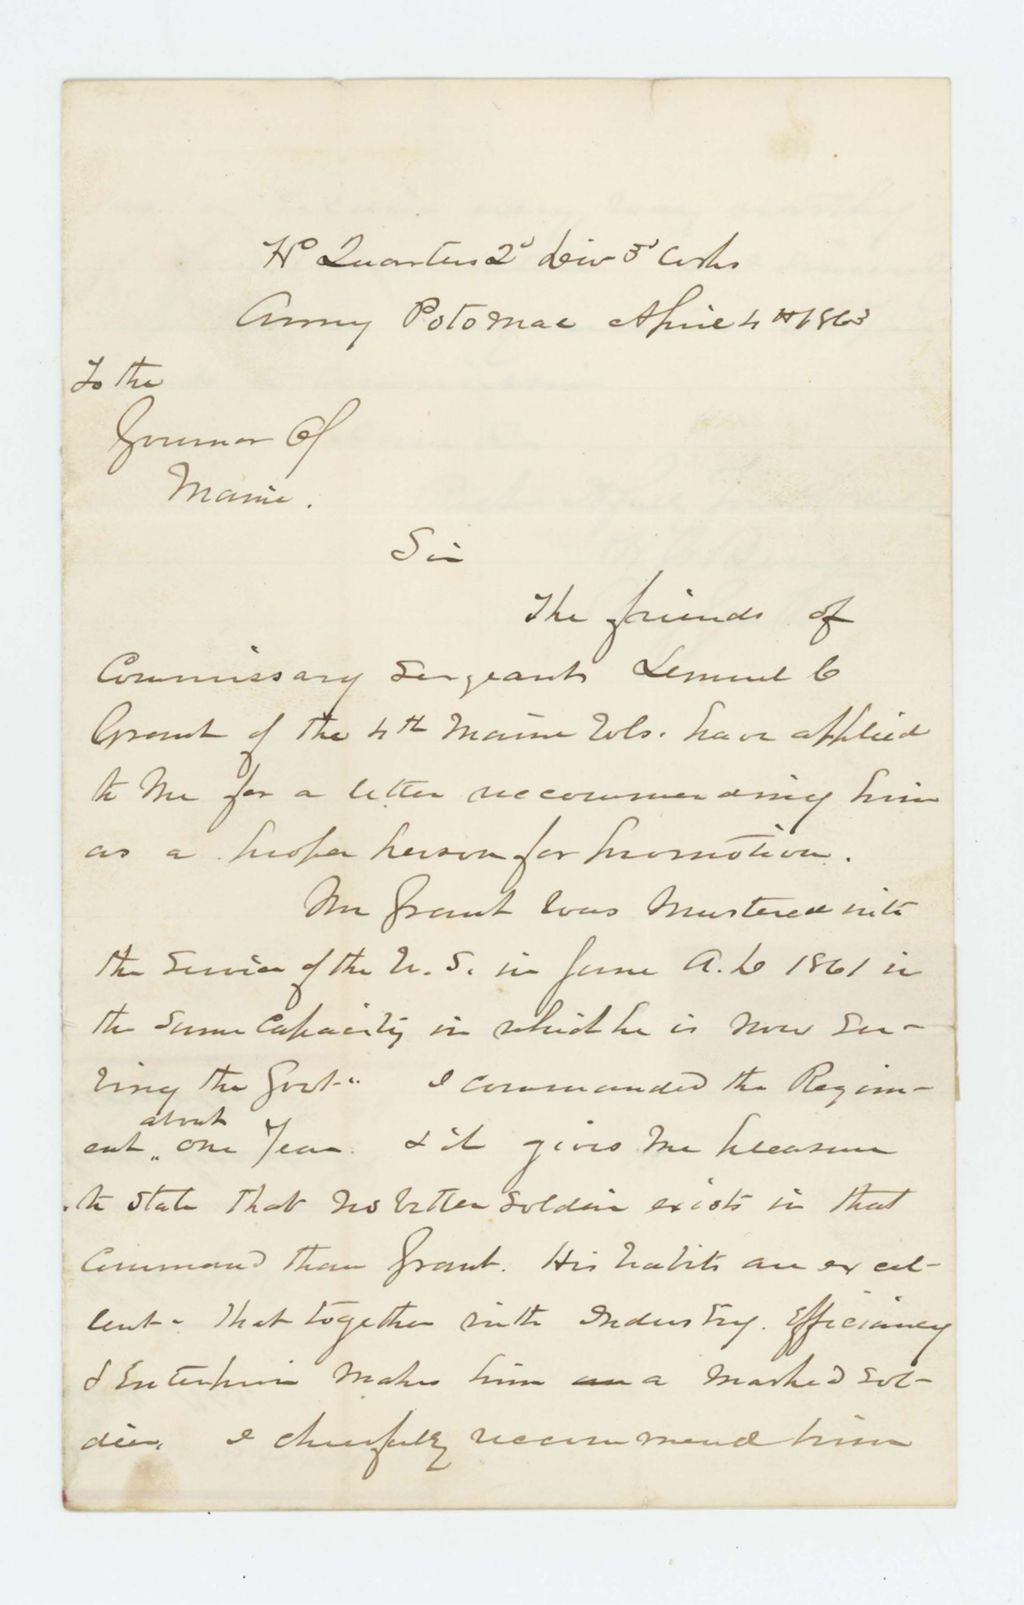 Hd Quarters 2d Div 3d Corps
Army Potomac April 4th 1863
To the
Governor Of
Maine.
Sir
The friends of
Commissary Sergeant Lemuel C
Grant of the 4th Maine Vols. have applied
to Me for a letter recommending him
as a proper person for promotion.
Mr Grant was Mustered into
the Service of the U. S. in June A.D 1861 in
the Same Capacity in which he is Now Ser-
ving the Govt. I commanded the Regim-
about
ent one Year & it gives Me pleasure
to State That No better Soldier exists in that
Command than Grant. His habits are excel-
lent. That together with Industry. Efficiency
& Enterprise Makes him a Marked Sol-
dier. I cheerfully recommend him